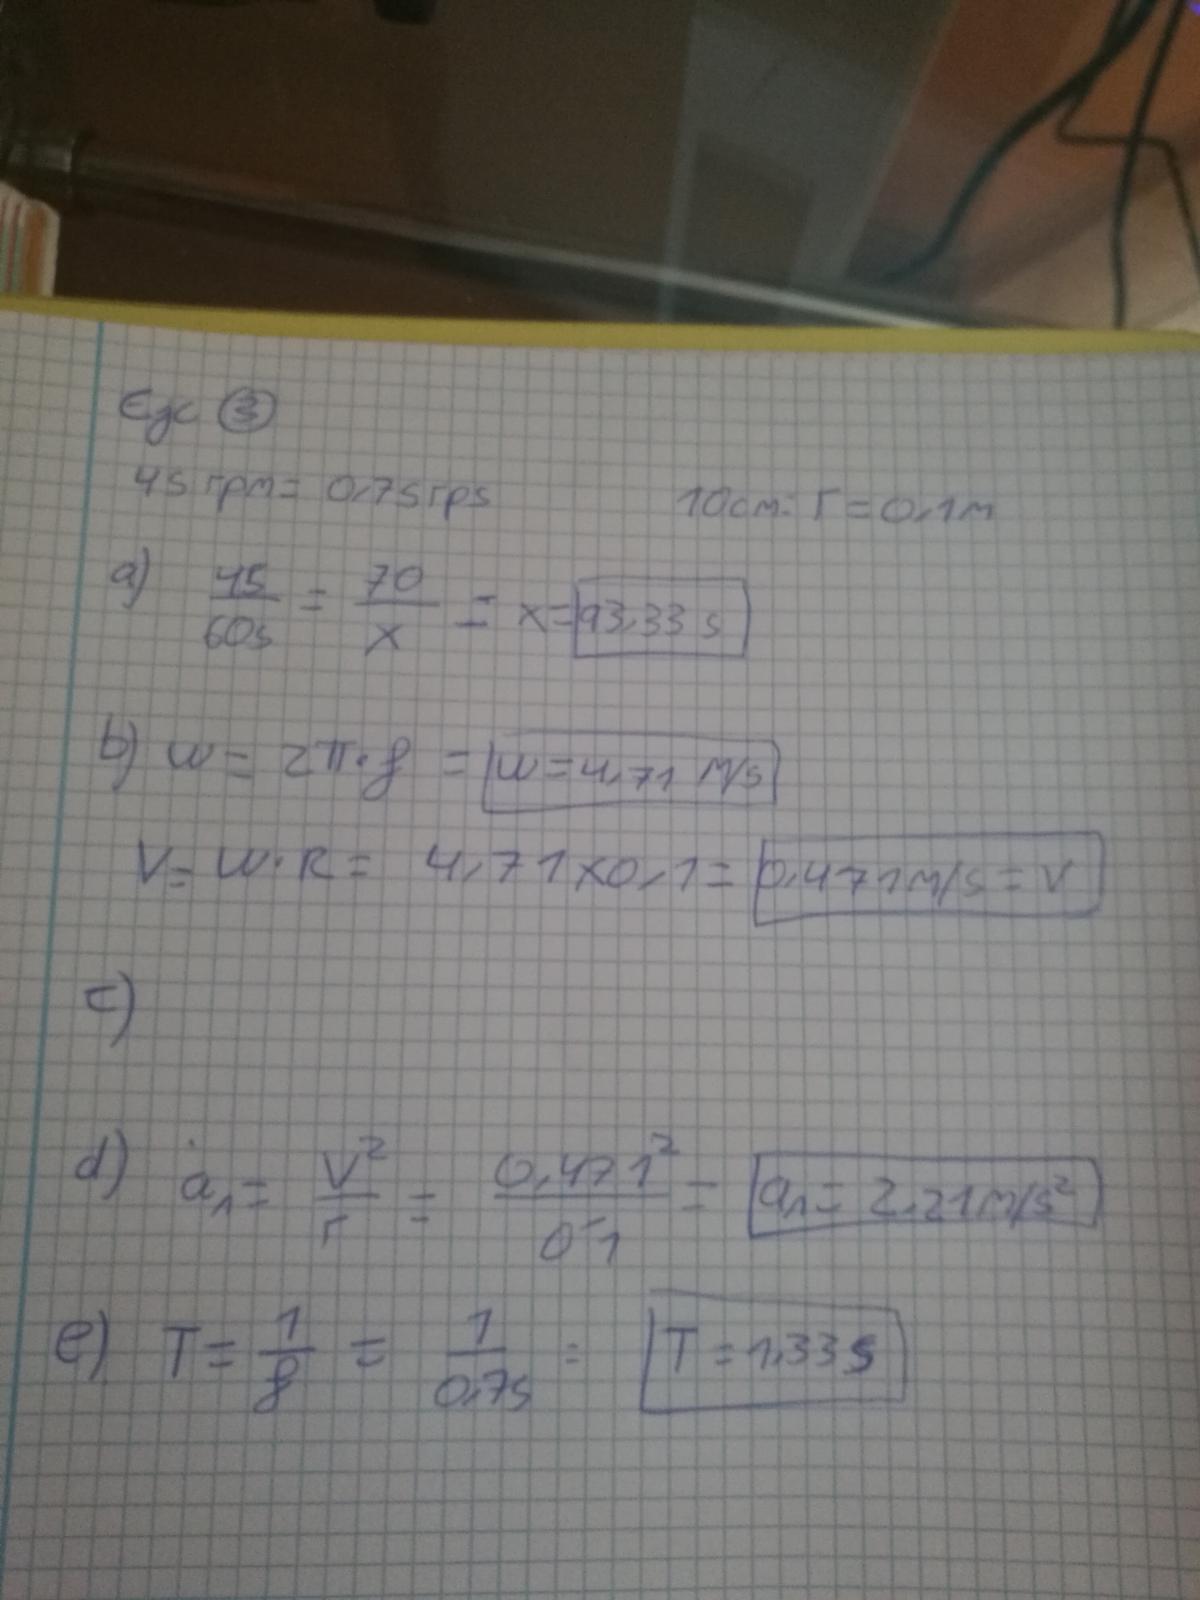 Ejc ③
45 rpm = 0,75 rps 10cm: r = 0,1m
a) 45/60s = 70/x = x = 93,33 s
b) w = 2π·f = w = 4,71 m/s
V = w·R = 4,71x0,1 = 0,471m/s = v
c)
d) an = V²/r = 0,471²/0,1 = an = 2,21m/s²
e) T = 1/f = 1/0,75 = T = 1,33 s